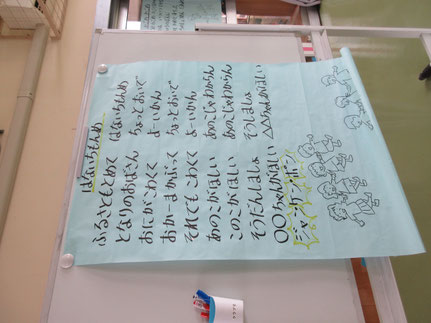 はないちもんめ
ふるさともとめて はないちもんめ
となりのおばさん ちょっとおいで
おにがこわくて よーいかん
おかーまかぶって ちょっとおいで
それでもこわくて よーいかん
あのこがほしい あのこじゃわからん
このこがほしい このこじゃわからん
そうだんしましょ そうしましょ
〇〇ちゃんがほしい △△ちゃんがほしい
ジャンケンポン